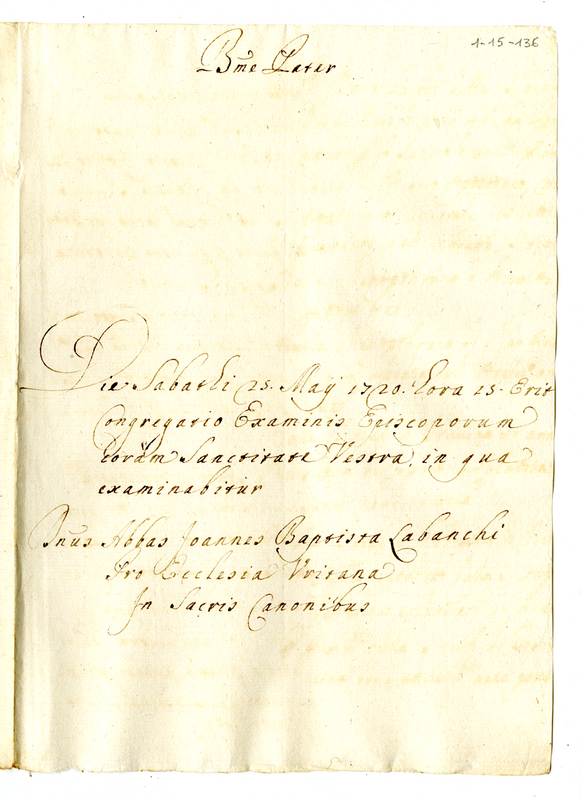 1-15-136
Bm̃e Pater
Die Sabathi 25. Maÿ 1720. hora 15. Erit
Congregatio Examinis Episcoporum
Coram Sanctitate Vestra, in qua
examinabitur
Dñus Abbas Joannes Baptista Labanchi
Pro Ecclesia Vritana
In Sacris Canonibus